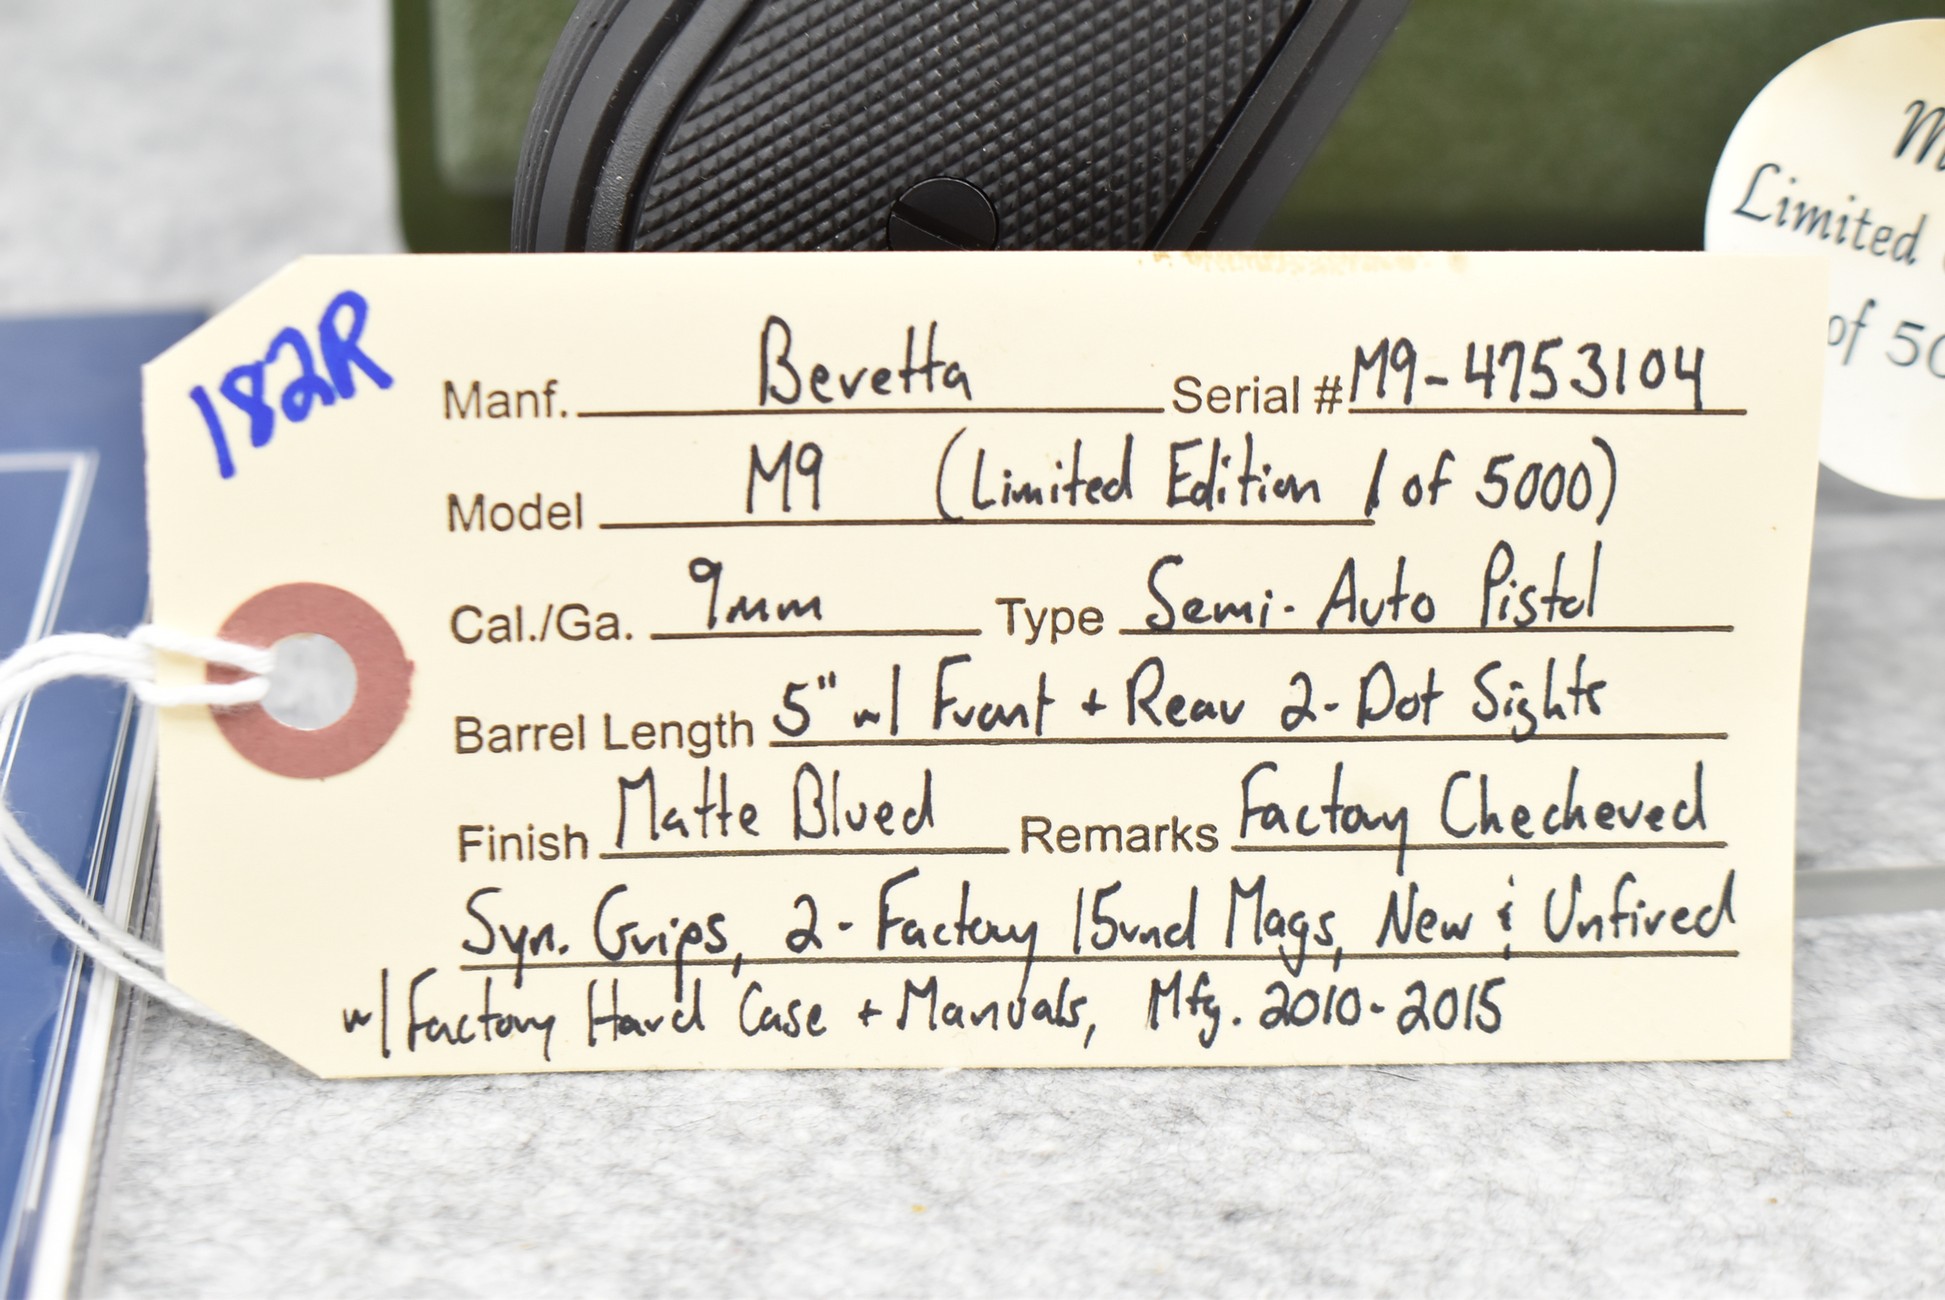 182R
Manf. Beretta Serial # M9-4753104
Model M9 (Limited Edition 1 of 5000)
Cal./Ga. 9mm Type Semi-Auto Pistol
Barrel Length 5" w/ Front + Rear 2-Dot Sights
Finish Matte Blued Remarks Factory Checkered
Syn. Grips, 2-Factory 15rnd Mags, New & Unfired
w/ Factory Hard Case + Manuals, Mfg. 2010-2015
Limited
of